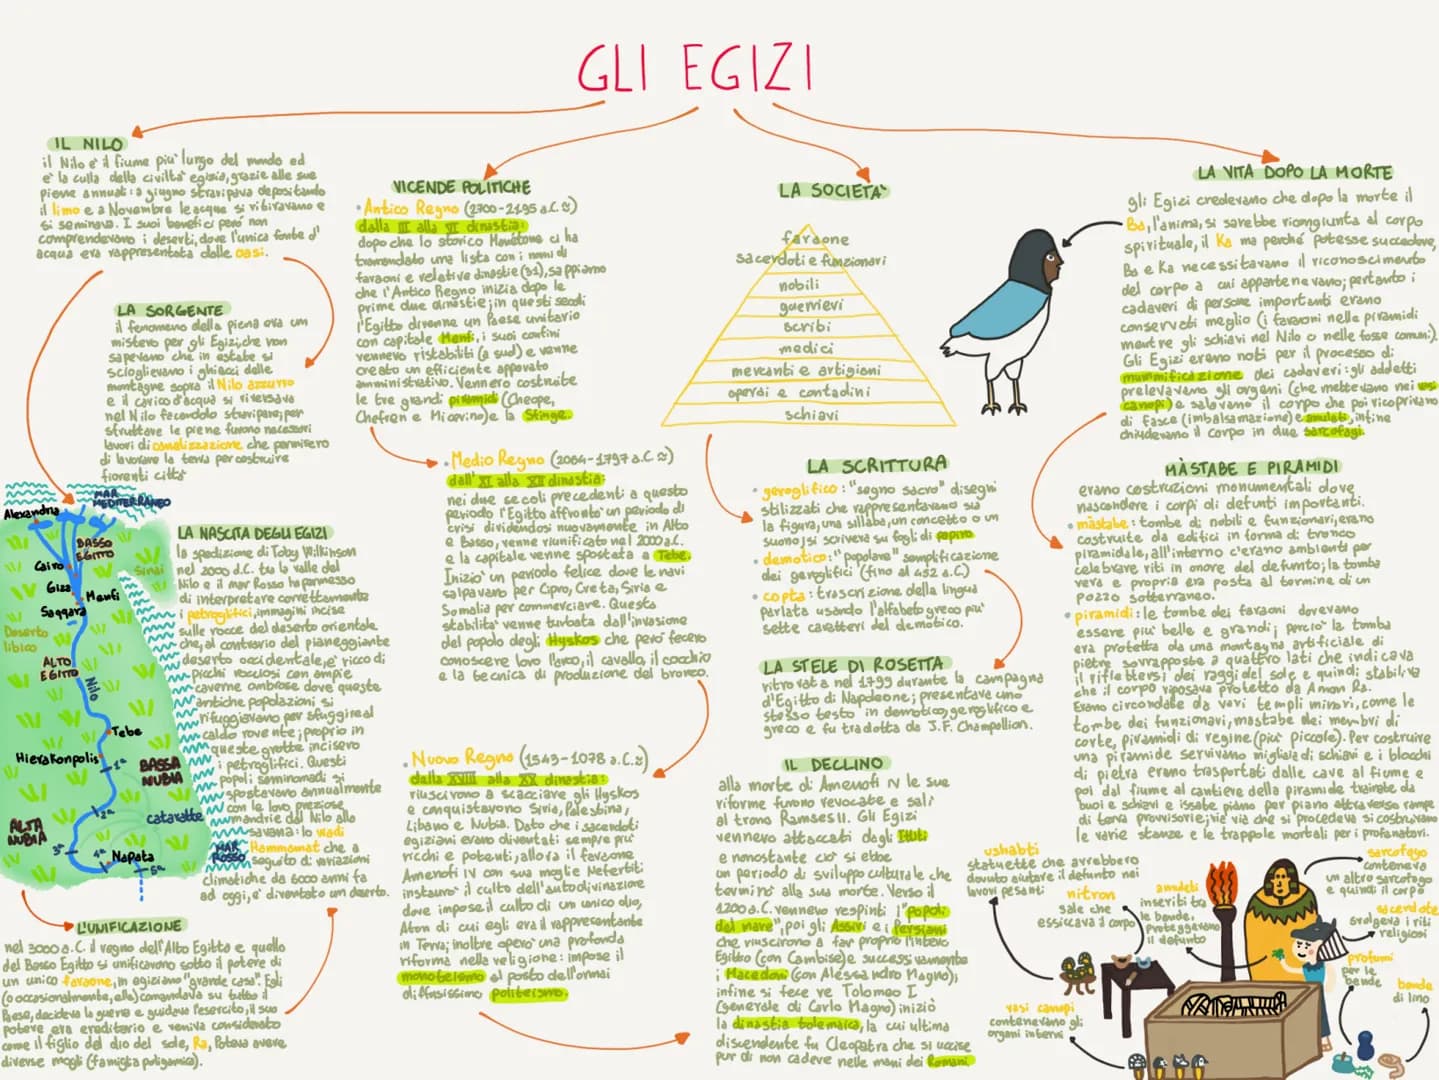 GLI EGIZI
IL NILO
il Nilo è il fiume più lungo del mondo ed
è la culla della civiltà egizia, grazie alle sue
piene annuali: a giugno straripava depositando
il limo e a Novembre le acque si ritiravano e
si seminava. I suoi benefici però non
comprendevano i deserti, dove l'unica fonte d'
acqua era rappresentata dalle oasi.
LA SORGENTE
il fenomeno della piena era un
mistero per gli Egizi, che non
sapevano che in estate si
scioglievano i ghiacci delle
montagne sopra il Nilo azzurro
e il carico d'acqua si riversava
nel Nilo facendolo straripare; per
sfruttare le piene furono necessari
lavori di canalizzazione che permisero
di lavorare la terra per costruire
fiorenti città
MAR
MEDITERRANEO
Alexandria
BASSO
EGITTO
Cairo
Sinai
Giza
Menfi
Saqqara
Deserto
libico
ALTO
EGITTO
Nilo
Tebe
Hierakonpolis
1ª
BASSA
NUBIA
2ª
cataratte
ALTA
NUBIA
3ª
4ª
Napata
5ª
MAR
ROSSO
LA NASCITA DEGLI EGIZI
la spedizione di Toby Wilkinson
nel 2000 d.C. tra la valle del
Nilo e il mar Rosso ha permesso
di interpretare correttamente
i petroglifici, immagini incise
sulle rocce del deserto orientale
che, al contrario del pianeggiante
deserto occidentale, e' ricco di
picchi rocciosi con ampie
caverne ombrose dove queste
antiche popolazioni si
rifuggiavano per sfuggire al
caldo rovente; proprio in
queste grotte incisero
i petroglifici. Questi
popoli seminomadi si
spostavano annualmente
con le loro preziose
mandrie dal Nilo alla
savana: lo wadi
Hammamat che a
seguito di variazioni
climatiche da 6000 anni fa
ad oggi, e' diventato un deserto.
L'UNIFICAZIONE
nel 3000 a.C. il regno dell'Alto Egitto e quello
del Basso Egitto si unificarono sotto il potere di
un unico faraone, in egiziano "grande casa". Egli
(o occasionalmente, ella) comandava su tutto il
Paese, decideva la guerra e guidava l'esercito, il suo
potere era ereditario e veniva considerato
come il figlio del dio del sole, Ra. Poteva avere
diverse mogli (famiglia poligamica).
VICENDE POLITICHE
• Antico Regno (2700-2195 a.C.≈)
dalla III alla VI dinastia:
dopo che lo storico Manetone ci ha
tramandato una lista con i nomi di
faraoni e relative dinastie (31), sappiamo
che l'Antico Regno inizia dopo le
prime due dinastie; in questi secoli
l'Egitto divenne un Paese unitario
con capitale Menfi, i suoi confini
vennero ristabiliti (a sud) e venne
creato un efficiente apparato
amministrativo. Vennero costruite
le tre grandi piramidi (Cheope,
Chefren e Micerino) e la Sfinge.
• Medio Regno (2064-1797 a.C ≈)
dall' XI alla XII dinastia:
nei due secoli precedenti a questo
periodo l'Egitto affrontò un periodo di
crisi dividendosi nuovamente in Alto
e Basso, venne riunificato nel 2000 a.C.
e la capitale venne spostata a Tebe.
Iniziò un periodo felice dove le navi
salpavano per Cipro, Creta, Siria e
Somalia per commerciare. Questa
stabilità venne turbata dall'invasione
del popolo degli Hyskos che però fecero
conoscere loro l'arco, il cavallo, il cocchio
e la tecnica di produzione del bronzo.
• Nuovo Regno (1543-1078 a.C.≈)
dalla XVIII alla XX dinastia:
riuscirono a scacciare gli Hyskos
e conquistavano Siria, Palestina,
Libano e Nubia. Dato che i sacerdoti
egiziani erano diventati sempre più
ricchi e potenti, allora il faraone
Amenofi IV con sua moglie Nefertiti
instaurò il culto dell'autodivinazione
dove impose il culto di un unico dio,
Aton di cui egli era il rappresentante
in Terra; inoltre operò una profonda
riforma nella religione: impose il
monoteismo al posto dell'ormai
diffusissimo politeismo.
LA SOCIETÀ
faraone
sacerdoti e funzionari
nobili
guerrieri
scribi
medici
mercanti e artigiani
operai e contadini
schiavi
LA SCRITTURA
• geroglifico: "segno sacro" disegni
stilizzati che rappresentavano sia
la figura, una sillaba, un concetto o un
suono; si scriveva su fogli di papiro
• demotico: "popolare" semplificazione
dei geroglifici (fino al 452 a.C)
• copta: trascrizione della lingua
parlata usando l'alfabeto greco più
sette caratteri del demotico.
LA STELE DI ROSETTA
ritrovata nel 1799 durante la campagna
d'Egitto di Napoleone; presentava uno
stesso testo in demotico, geroglifico e
greco e fu tradotta da J.F. Champollion.
IL DECLINO
alla morte di Amenofi IV le sue
riforme furono revocate e salì
al trono Ramses II. Gli Egizi
vennero attaccati dagli Ittiti
e nonostante ciò si ebbe
un periodo di sviluppo culturale che
terminò alla sua morte. Verso il
1200 a.C. vennero respinti i "popoli
del mare", poi gli Assiri e i Persiani
che riuscirono a far proprio l'intero
Egitto (con Cambise) e successivamente
i Macedoni (con Alessandro Magno);
infine si fece re Tolomeo I
(generale di Carlo Magno) iniziò
la dinastia tolemaica, la cui ultima
discendente fu Cleopatra che si uccise
pur di non cadere nelle mani dei Romani.
LA VITA DOPO LA MORTE
gli Egizi credevano che dopo la morte il
Ba, l'anima, si sarebbe ricongiunta al corpo
spirituale, il Ka ma perché potesse succedere,
Ba e Ka necessitavano il riconoscimento
del corpo a cui appartenevano; pertanto i
cadaveri di persone importanti erano
conservati meglio (i faraoni nelle piramidi
mentre gli schiavi nel Nilo o nelle fosse comuni).
Gli Egizi erano noti per il processo di
mummificazione dei cadaveri: gli addetti
prelevavano gli organi (che mettevano nei vasi
canopi) e salavano il corpo che poi ricoprivano
di fasce (imbalsamazione) e amuleti, infine
chiudevano il corpo in due sarcofagi.
MÀSTABE E PIRAMIDI
erano costruzioni monumentali dove
nascondere i corpi di defunti importanti.
• màstabe: tombe di nobili e funzionari, erano
costruite da edifici in forma di tronco
piramidale, all'interno c'erano ambienti per
celebrare riti in onore del defunto; la tomba
vera e propria era posta al termine di un
pozzo sotterraneo.
• piramidi: le tombe dei faraoni dovevano
essere più belle e grandi; perciò la tomba
era protetta da una montagna artificiale di
pietre sovrapposte a quattro lati che indicava
il riflettersi dei raggi del sole e quindi stabiliva
che il corpo riposava protetto da Amon Ra.
Erano circondate da vari templi minori, come le
tombe dei funzionari, mastabe dei membri di
corte, piramidi di regine (più piccole). Per costruire
una piramide servivano migliaia di schiavi e i blocchi
di pietra erano trasportati dalle cave al fiume e
poi dal fiume al cantiere della piramide trainate da
buoi e schiavi e issate piano per piano attraverso rampe
di terra provvisorie; via via che si procedeva si costruivano
le varie stanze e le trappole mortali per i profanatori.
ushabti
statuette che avrebbero
dovuto aiutare il defunto nei
lavori pesanti
nitron
sale che
essiccava il corpo
amuleti
inseriti tra
le bende,
proteggevano
il defunto
sarcofago
conteneva
un altro sarcofago
e quindi il corpo
sacerdote
svolgeva i riti
religiosi
profumi
per le
bende
bende
di lino
vasi canopi
contenevano gli
organi interni